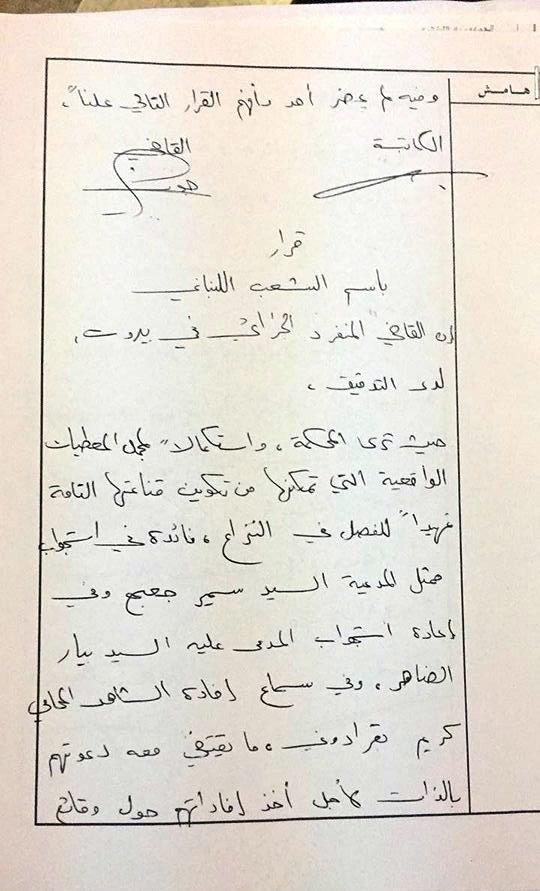 هامش
وفيه لم يحضر أحد فأفهم القرار التالي علناً،
الكاتبة القاضي
قرار
باسم الشعب اللبناني
إن القاضي المنفرد الجزائي في بيروت،
لدى التدقيق،
حيث ترى المحكمة، واستكمالاً لمجمل المعطيات
الواقعية التي تمكنها من تكوين قناعتها التامة
تمهيداً للفصل في النزاع، فائدة في استجواب
ممثل المدعية السيد سمير جعجع وفي
إعادة استجواب المدعى عليه السيد بيار
الضاهر، وفي سماع إفادة الشاهد المحامي
كريم بقرادوني، ما يقتضي معه دعوتهم
بالذات لأجل أخذ إفاداتهم حول وقائع